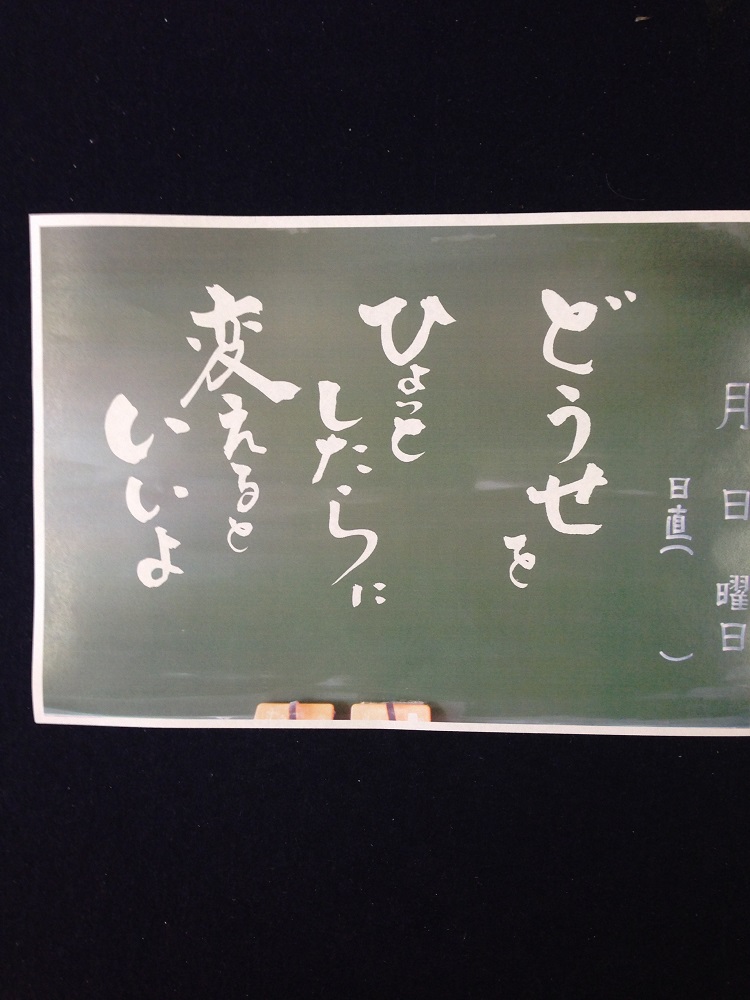 月 日 曜日
日直( )
どうせを
ひょっと
したらに
変えると
いいよ